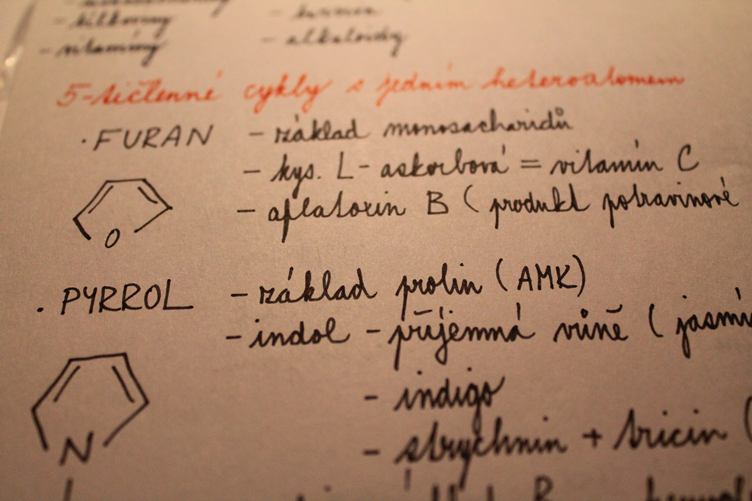 - bílkoviny
- vitamíny
- alkaloidy
5-tičlenné cykly s jedním heteroatomem
· FURAN - základ monosacharidů
- kys. L-askorbová = vitamín C
- aflatoxin B (produkt potravinové
O
· PYRROL - základ prolin (AMK)
- indol - příjemná vůně (jasmí
- indigo
- strychnin + bricin (
N